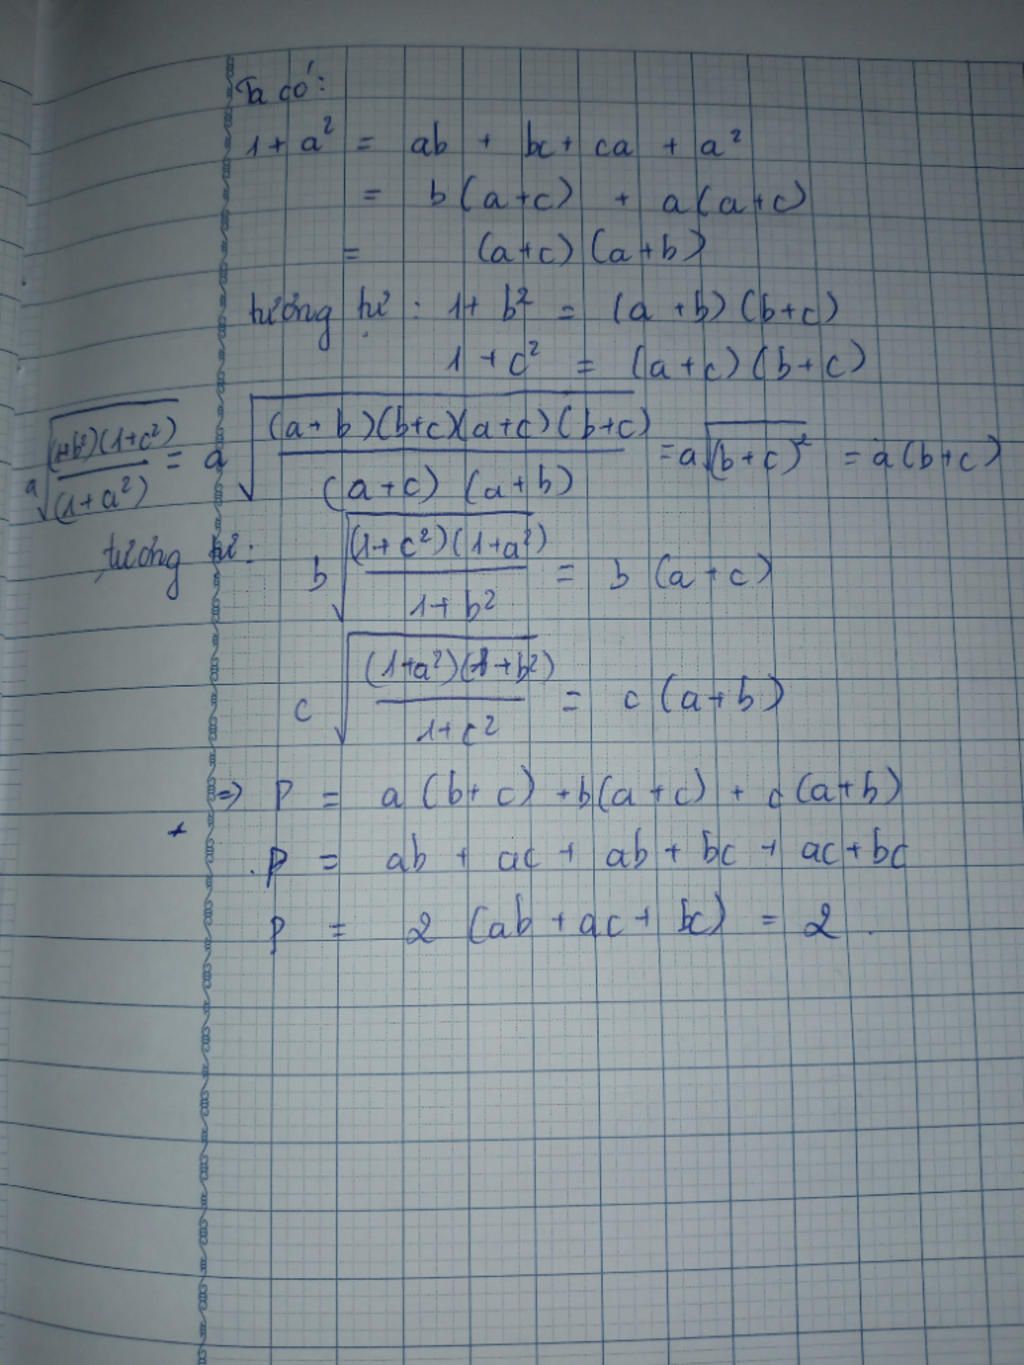 Ta có:
1 + a² = ab + bc + ca + a²
= b(a+c) + a(a+c)
= (a+c)(a+b)
tương tự : 1 + b² = (a+b)(b+c)
1 + c² = (a+c)(b+c)
a√((1+b²)(1+c²)/(1+a²)) = a√((a+b)(b+c)(a+c)(b+c)/(a+c)(a+b)) = a√(b+c)² = a(b+c)
tương tự : b√((1+c²)(1+a²)/1+b²) = b(a+c)
c√((1+a²)(1+b²)/1+c²) = c(a+b)
=> P = a(b+c) + b(a+c) + c(a+b)
P = ab + ac + ab + bc + ac + bc
P = 2(ab + ac + bc) = 2.